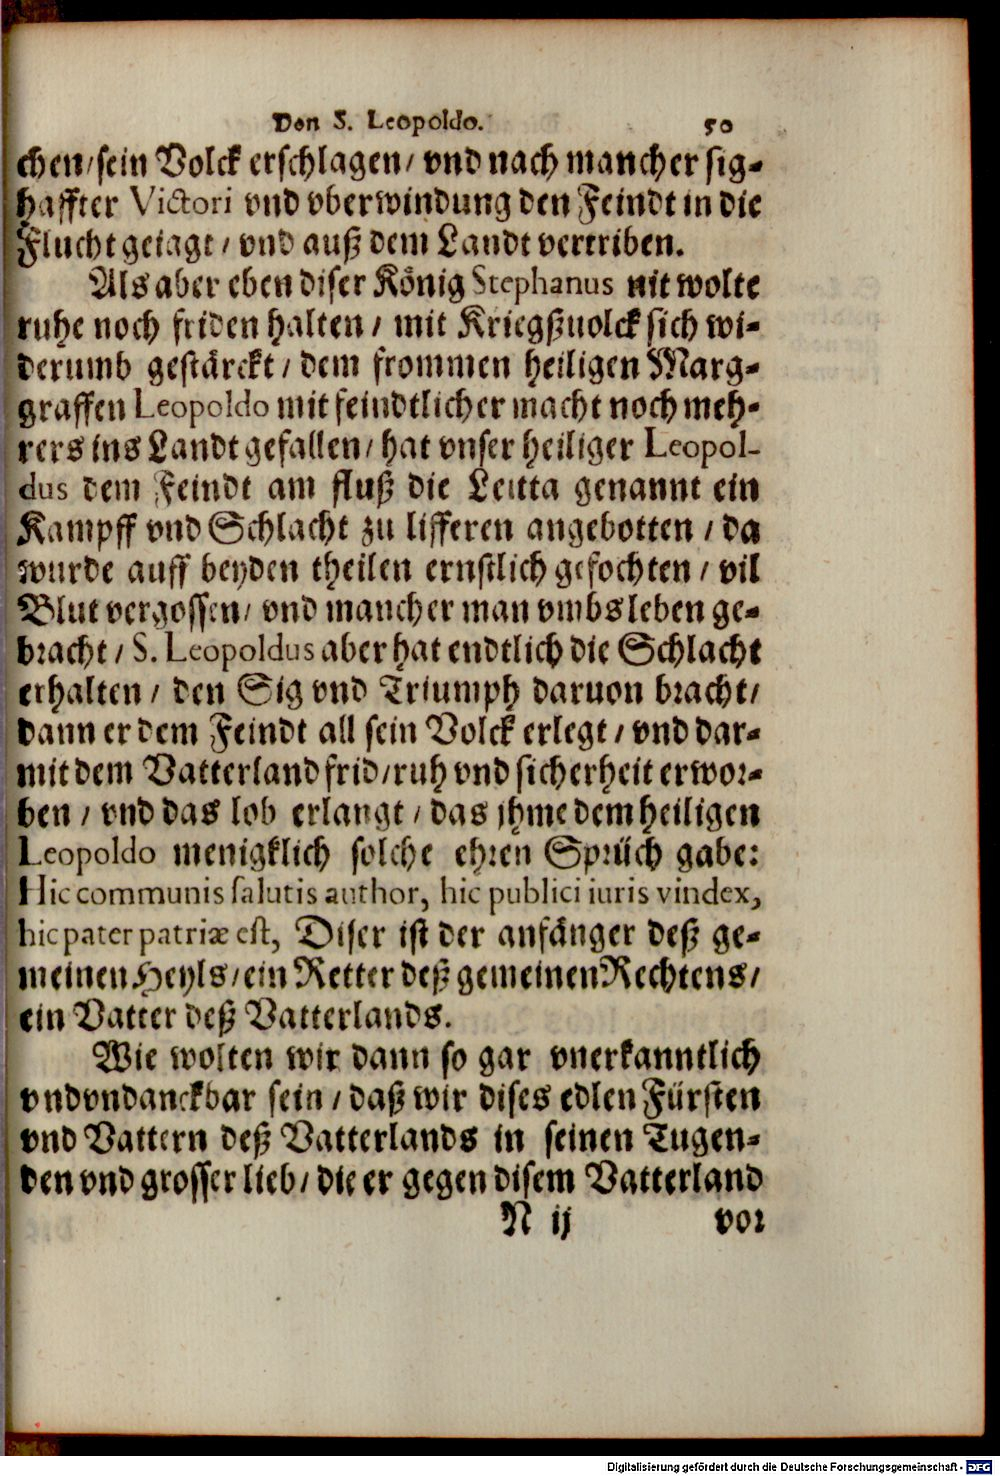 Von S. Leopoldo. 50
chen/sein Volck erschlagen/ vnd nach mancher sig-
haffter Victori vnd vberwindung den Feindt in die
Flucht gejagt / vnd auß dem Landt vertriben.
Als aber eben diser König Stephanus nit wolte
ruhe noch friden halten / mit Kriegßuolck sich wi-
derumb gestärckt / dem frommen heiligen Marg-
graffen Leopoldo mit feindtlicher macht noch meh-
rers ins Landt gefallen / hat vnser heiliger Leopol-
dus dem Feindt am fluß die Leitta genannt ein
Kampff vnd Schlacht zu lifferen angebotten / da
wurde auff beyden theilen ernstlich gefochten / vil
Blut vergossen/ vnd mancher man vmbs leben ge-
bracht / S. Leopoldus aber hat endtlich die Schlacht
erhalten / den Sig vnd Triumph daruon bracht/
dann er dem Feindt all sein Volck erlegt / vnd dar-
mit dem Vatterland frid/ruh vnd sicherheit erwor-
ben / vnd das lob erlangt / das jhme dem heiligen
Leopoldo menigklich solche ehren Sprüch gabe:
Hic communis salutis author, hic publici iuris vindex,
hic pater patriæ est, Diser ist der anfänger deß ge-
meinen Heyls/ein Retter deß gemeinen Rechtens/
ein Vatter deß Vatterlands.
Wie wolten wir dann so gar vnerkanntlich
vnd vndanckbar sein / daß wir dises edlen Fürsten
vnd Vattern deß Vatterlands in seinen Tugen-
den vnd grosser lieb/ die er gegen disem Vatterland
N ij vor
Digitalisierung gefördert durch die Deutsche Forschungsgemeinschaft - DFG